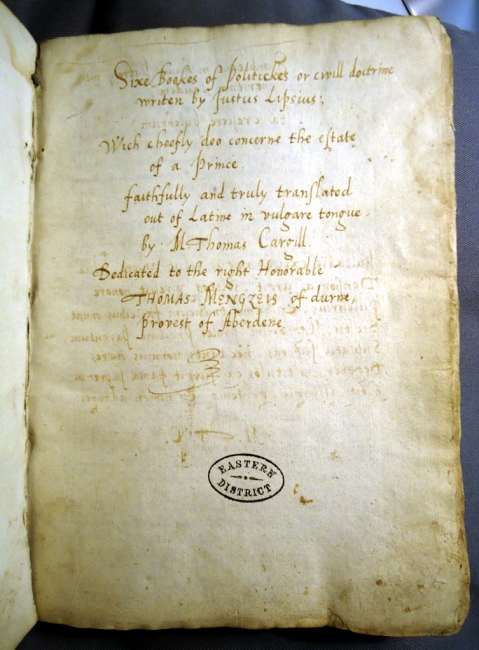 Sixe Bookes of Politickes or civill doctrine
writen by Justus Lipsius:
Wich cheefly doo concerne the estate
of a Prince
faithfully and truly translated
out of Latine in vulgare tongue,
by M Thomas Cargill.
Dedicated to the right Honorable
THOMAS MENGZEIS of durne,
provest of Aberdene
EASTERN
DISTRICT